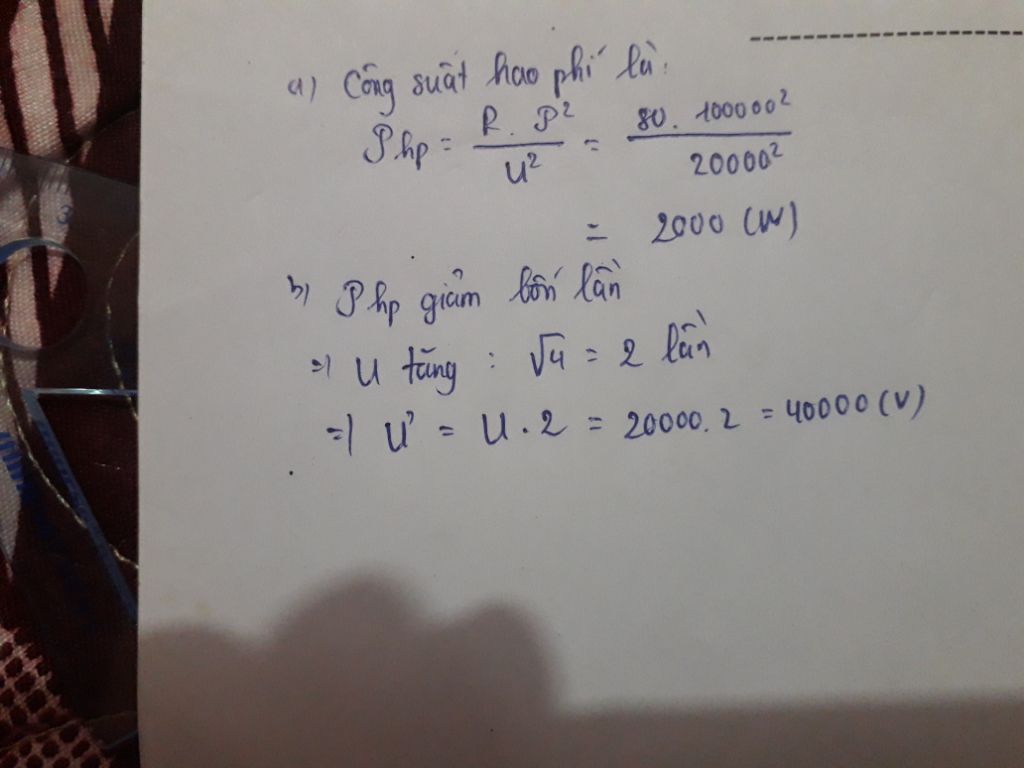 a) Công suất hao phí là:
P hp = R . P² / U² = 80 . 100000² / 20000²
= 2000 (W)
b) P hp giảm bốn lần
=> U tăng : √4 = 2 lần
=> U' = U . 2 = 20000 . 2 = 40000 (V)